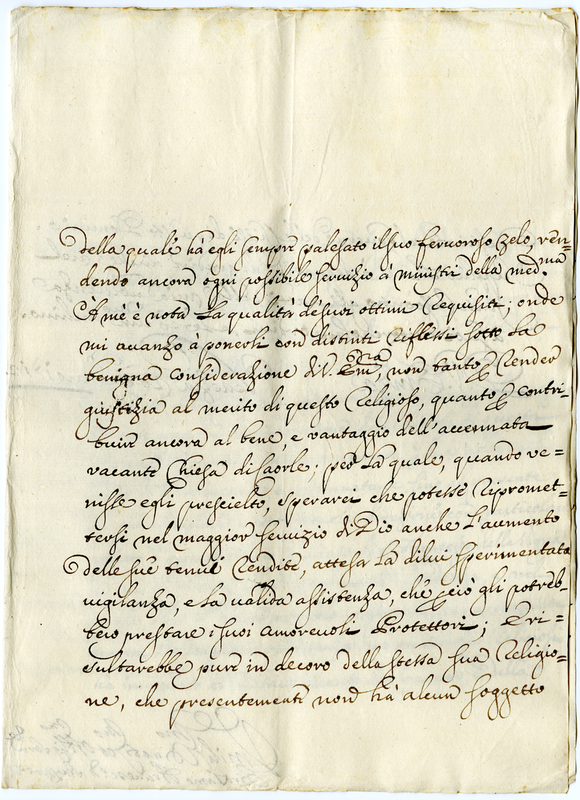 della quale hà egli sempre palesato il suo feruoroso zelo, ren=
dendo ancora ogni possibile seruizio à ministri della med.ma
À mè è nota la qualità de suoi ottimi requisiti; onde
mi auanzo à ponerli con distinti riflessi sotto la
benigna considerazione di V. Em.za, non tanto p render
giustizia al merito di questo Religioso, quanto p contri=
buir ancora al bene, e vantaggio dell'accennata
vacante Chiesa di Caorle; per la quale, quando ve=
nisse egli prescielto, sperarei che potesse ripromet=
tersi nel maggior seruizio di Dio anche l'aumento
delle sue tenui rendite, attesa la di lui sperimentata
vigilanza, e la valida assistenza, che p ciò gli potreb=
bero prestare i suoi amoreuoli Protettori; E ri=
sultarebbe pure in decoro della stessa sua Religio=
ne, che presentemente non hà alcun soggetto